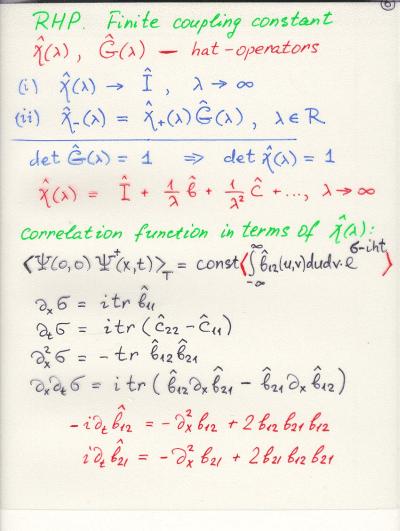 6
RHP. Finite coupling constant
χ̂(λ), Ĝ(λ) — hat-operators
(i) χ̂(λ) → Î, λ → ∞
(ii) χ̂₋(λ) = χ̂₊(λ)Ĝ(λ), λ ∈ R
det Ĝ(λ) = 1 ⇒ det χ̂(λ) = 1
χ̂(λ) = Î + 1/λ b̂ + 1/λ² ĉ + ..., λ → ∞
correlation function in terms of χ̂(λ):
⟨Ψ(0,0) Ψ⁺(x,t)⟩_T = const⟨∫_{-∞}^{∞} b̂₁₂(u,v)dudv·e^{σ-iht}⟩
∂ₓσ = i tr b̂₁₁
∂ₜσ = i tr (ĉ₂₂ − ĉ₁₁)
∂ₓ²σ = − tr b̂₁₂b̂₂₁
∂ₓ∂ₜσ = i tr (b̂₁₂∂ₓb̂₂₁ − b̂₂₁∂ₓb̂₁₂)
−i∂ₜb̂₁₂ = −∂ₓ²b₁₂ + 2b₁₂b₂₁b₁₂
i∂ₜb̂₂₁ = −∂ₓ²b₂₁ + 2b₂₁b₁₂b₂₁